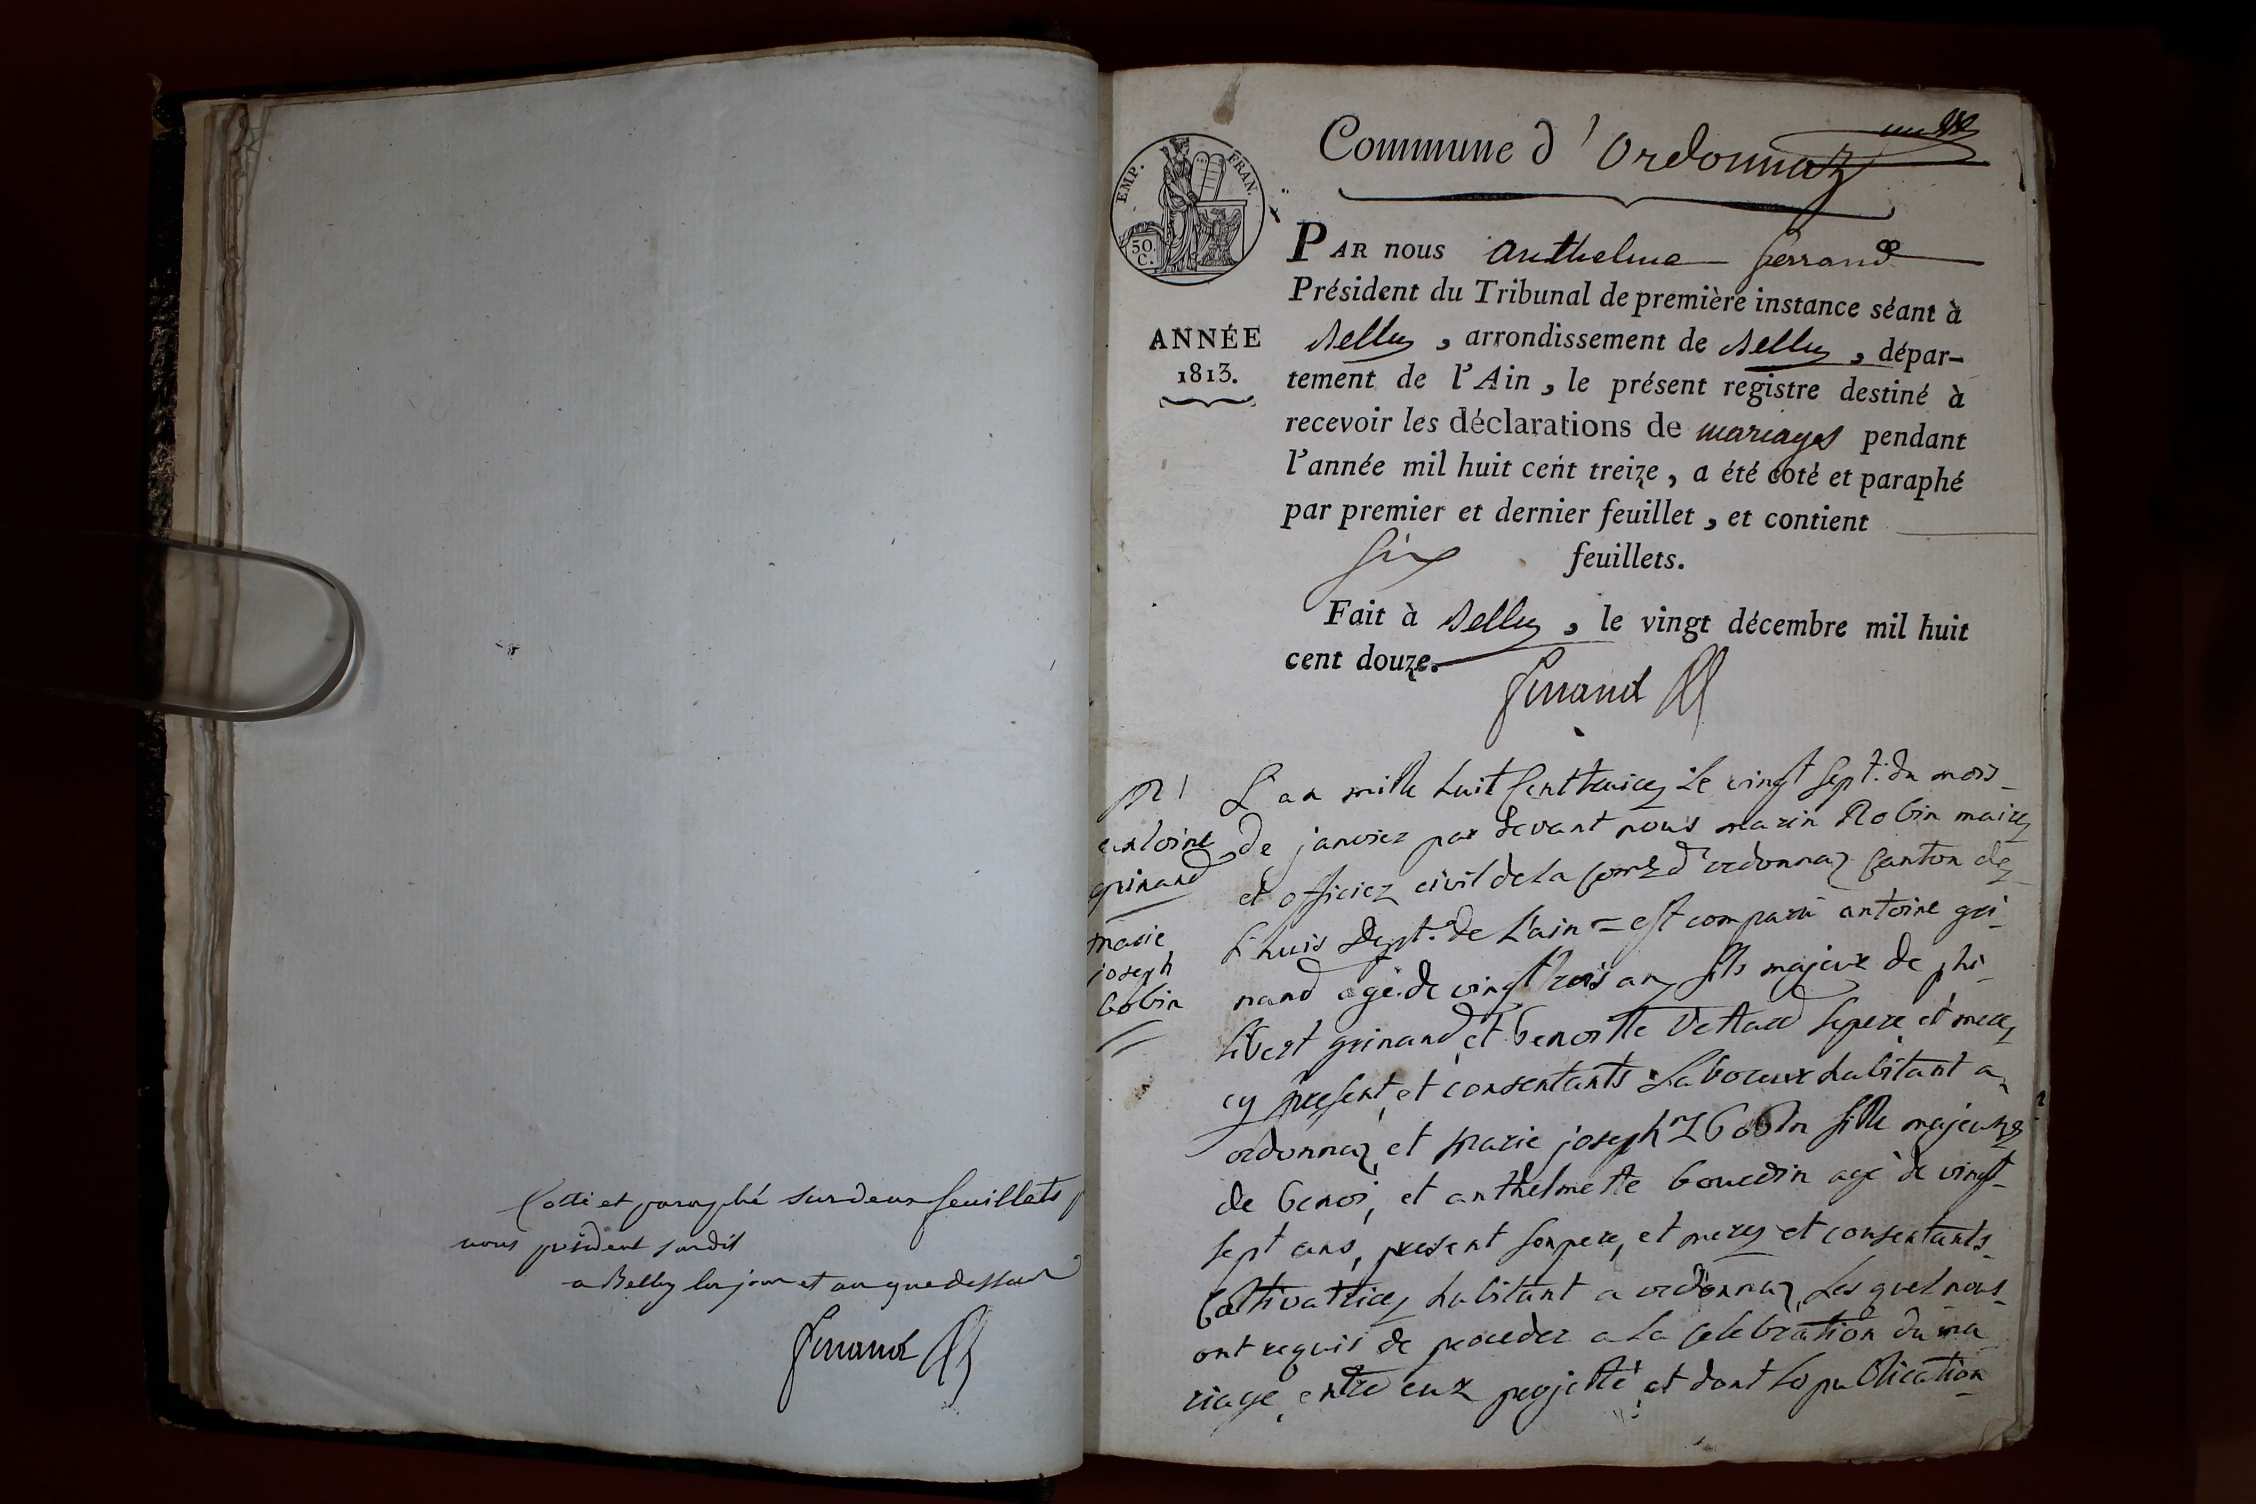 Cotté et paraphé sur deux feuillets p
nous président susdit
a Belley les jour et an que dessus
Ferrand
Commune d'Ordonnaz
un
EMP. FRAN.
50 C.
PAR nous Anthelme Ferrand
Président du Tribunal de première instance séant à
Belley, arrondissement de Belley, dépar-
tement de l'Ain, le présent registre destiné à
recevoir les déclarations de mariages pendant
l'année mil huit cent treize, a été coté et paraphé
par premier et dernier feuillet, et contient
six feuillets.
Fait à Belley, le vingt décembre mil huit
cent douze.
Ferrand
ANNÉE
1813.
N 1
antoine
grinand
marie
joseph
bobin
L'an mille huit cent treize le vingt sept. du mois
de janvier par devant nous marin Robin maire
et officier civil de la com d'ordonnaz canton de
L'huis Dept. de L'ain = est comparu antoine gri-
nand agé de vingt trois an fils majeur de phi-
libert grinand, et benoitte Vettard ses pere et mere
cy present, et consentants Laboureur habitant a
ordonnaz, et marie joseph bobin fille majeure
de benoi, et anthelmette bourdin agé de vingt
sept ans, present son pere, et mere et consentants
Cultivatrice habitant a ordonnaz, Les quel nous
ont requis de proceder a La celebration du ma
riage, entre eux projetté, et dont la publication